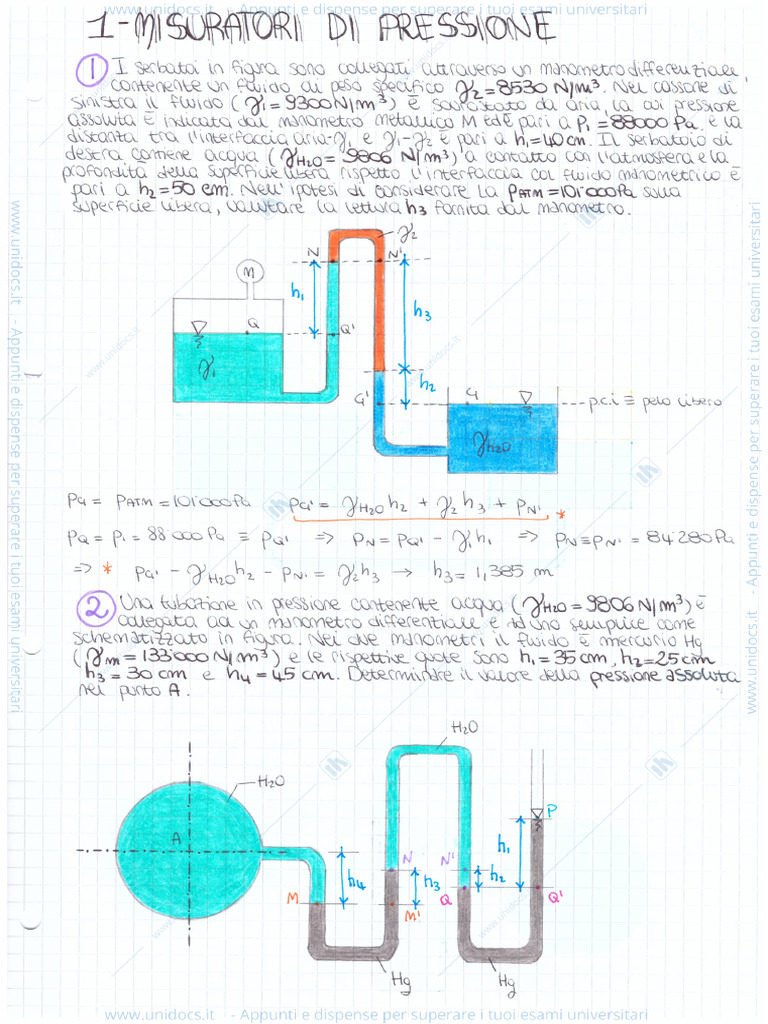 www.unidocs.it - Appunti e dispense per superare i tuoi esami universitari
1-MISURATORI DI PRESSIONE
① I serbatoi in figura sono collegati attraverso un manometro differenziale,
contenente un fluido di peso specifico γ2=8530 N/m³. Nel cassone di
sinistra il fluido (γ1=9300N/m³) è sovrastato da aria, la cui pressione
assoluta è indicata dal manometro metallico M ed è pari a P1=88000 Pa. e la
distanza tra l'interfaccia aria-γ1 e γ1-γ2 è pari a h1=40cm. Il serbatoio di
destra contiene acqua (γH2O = 9806 N/m³) a contatto con l'atmosfera e la
profondità della superficie libera rispetto l'interfaccia col fluido manometrico è
pari a h2=50 cm. Nell'ipotesi di considerare la PATM=101'000Pa sulla
superficie libera, valutare la lettura h3 fornita dal manometro.
γ2
N N'
M
h1
h3
Q Q'
γ1
h2
G' G
p.c.i ≡ pelo libero
γH2O
PG = PATM=101'000Pa PG' = γH2O h2 + γ2 h3 + PN' *
PQ = P1 = 88'000Pa ≡ PQ' => PN = PQ' - γ1h1 => PN≡PN' = 84'280Pa
=> * PG' - γH2O h2 - PN' = γ2h3 → h3 = 1,385 m
② Una tubazione in pressione contenente acqua (γH2O=9806N/m³) è
collegata ad un manometro differenziale e ad uno semplice come
schematizzato in figura. Nei due manometri il fluido è mercurio Hg
(γm=133'000N/m³) e le rispettive quote sono h1=35cm, h2=25cm
h3=30 cm e h4=45 cm. Determinare il valore della pressione assoluta
nel punto A.
H2O
H2O
P
A
h1
N N'
h4 h3 h2
M M' Q Q'
Hg Hg
www.unidocs.it - Appunti e dispense per superare i tuoi esami universitari
www.unidocs.it - Appunti e dispense per superare i tuoi esami universitari
www.unidocs.it - Appunti e dispense per superare i tuoi esami universitari